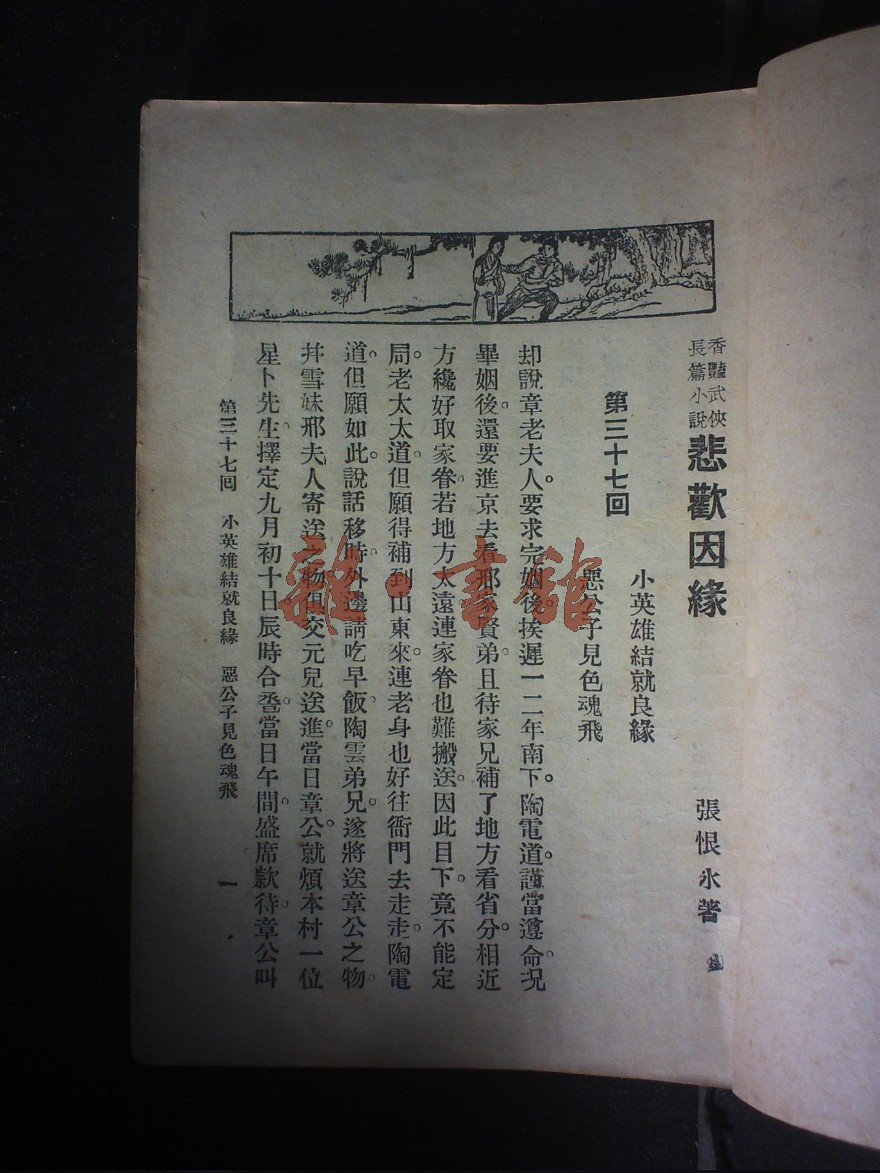 香豔武俠
長篇小說
悲歡因緣
張恨水著
第三十七回
小英雄結就良緣
惡公子見色魂飛
却說章老夫人。要求完姻後。挨遲一二年南下。陶電道。謹當遵命。況
畢姻後。還要進京去看邢家賢弟。且待家兄補了地方看省分。相近
方纔好取家眷。若地方太遠。連家眷也難搬送。因此目下。竟不能定
局。老太太道。但願得補到山東來。連老身也好往衙門去走走。陶電
道。但願如此。說話移時。外邊請吃早飯。陶雲弟兄。遂將送章公之物。
幷雪妹邢夫人寄送之物。俱交元兒送進。當日章公。就煩本村一位
星卜先生。擇定九月初十日辰時合卺。當日午間。盛席款待。章公叫
第三十七回　小英雄結就良緣　惡公子見色魂飛
一
雜·書館